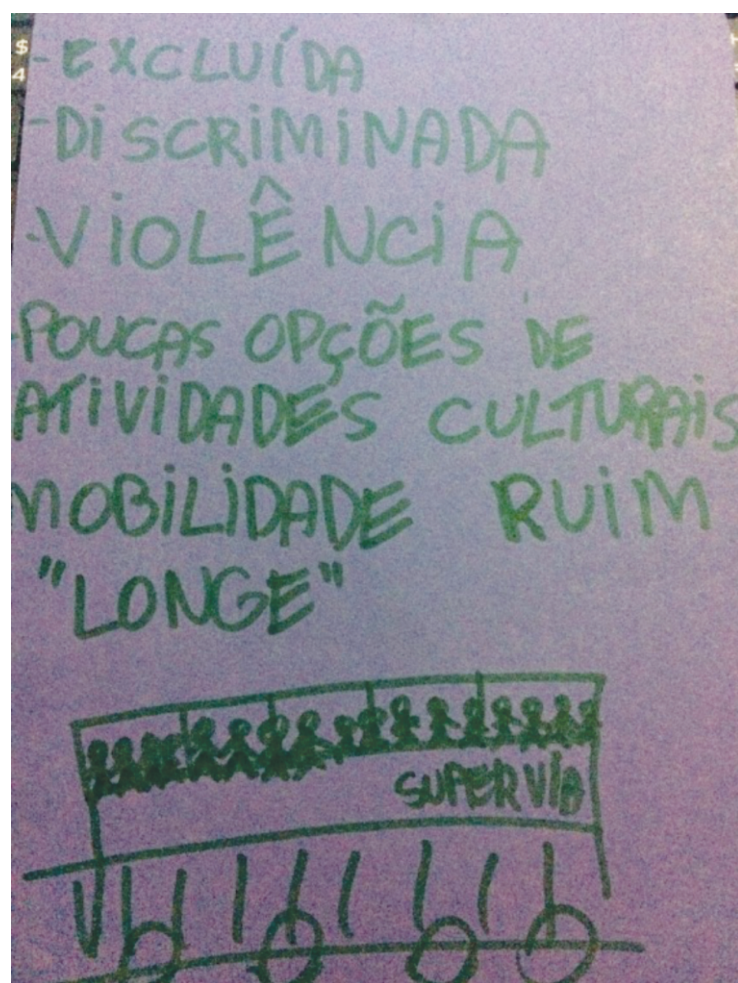 -EXCLUÍDA
-DISCRIMINADA
-VIOLÊNCIA
-POUCAS OPÇÕES DE
ATIVIDADES CULTURAIS
MOBILIDADE RUIM
"LONGE"
SUPERVIA